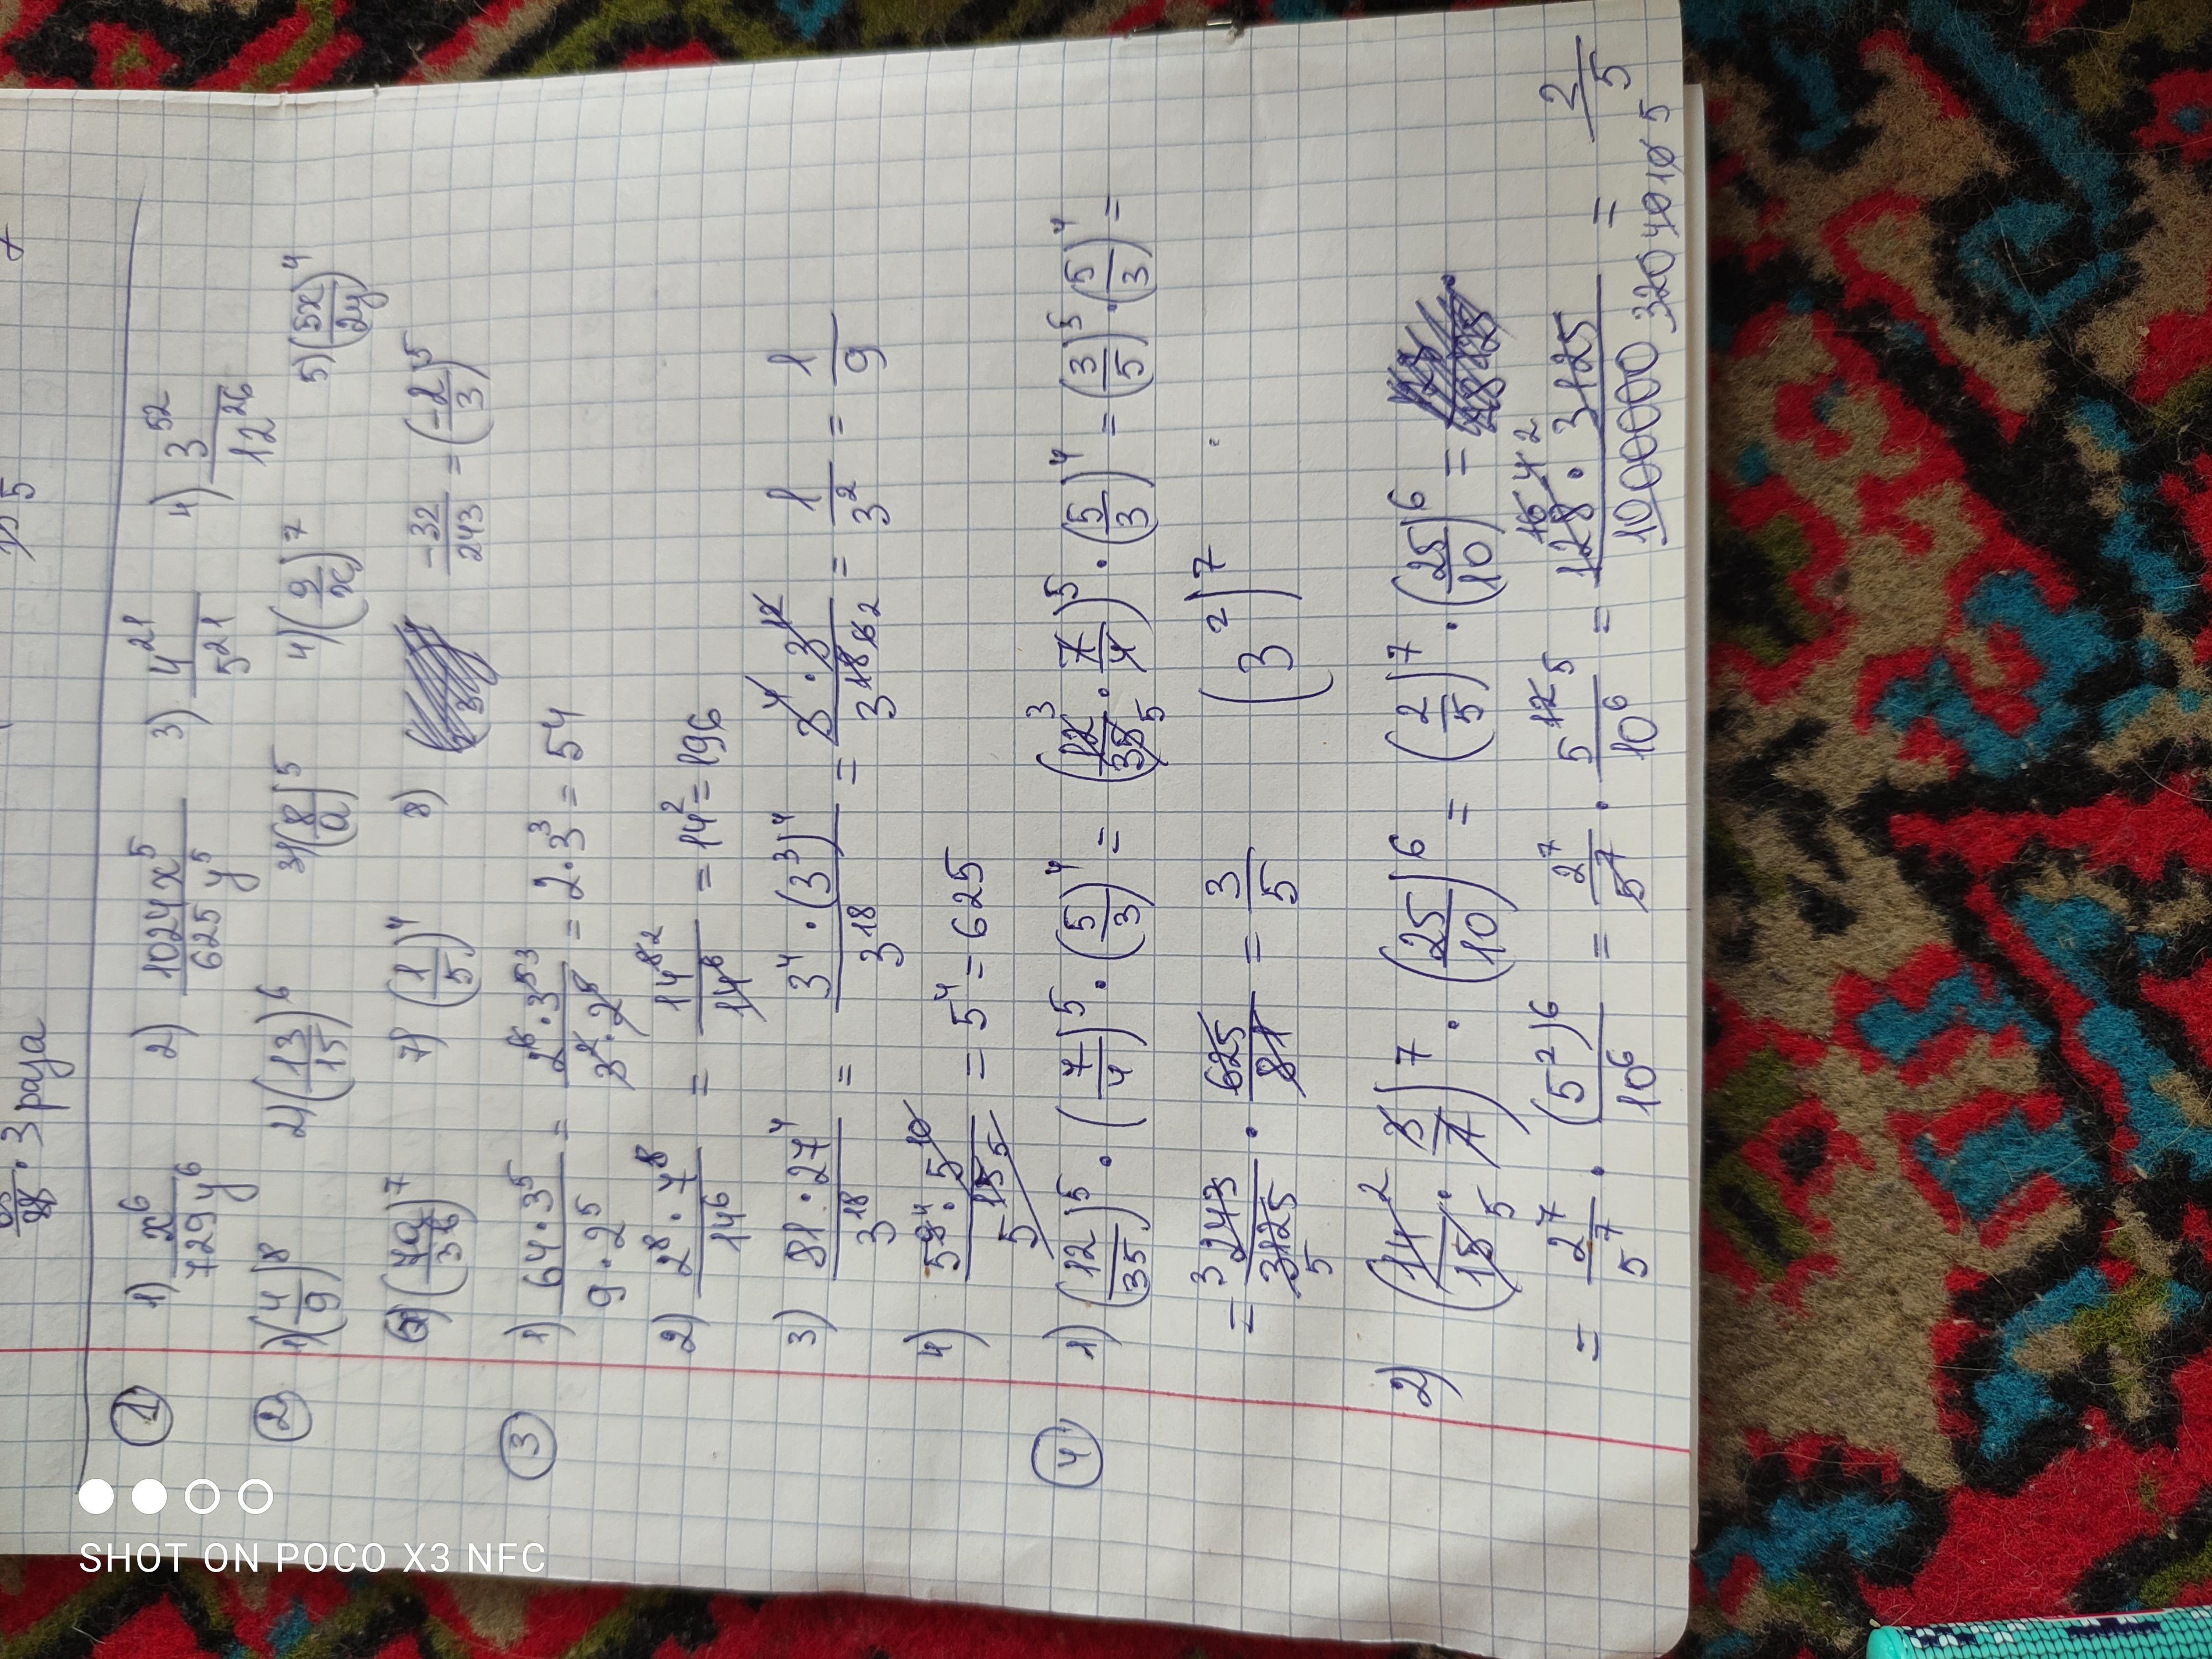 . 3 раза
① 1) x⁶/729y⁶ 2) 1024x⁵/625y⁵ 3) 4²¹/5²¹ 4) 3⁵²/12²⁶
② 1) (4/9)⁸ 2) (13/15)⁶ 3) (8/a)⁵ 4) (9/x)⁷ 5) (5x/2y)⁴
7) (1/5)⁴ 8) -32/243 = (-2/3)⁵
③ 1) 64·3⁵/9·2⁵ = = 2·3³ = 54
2) 2⁸·7⁸/14⁶ = 14⁸/14⁶ = 14² = 196
3) 81·27⁴/3¹⁸ = 3⁴·(3³)⁴/3¹⁸ = 3⁴·3¹²/3¹⁸ = 1/3² = 1/9
4) = 5⁴ = 625
④ 1) (12/35)⁵ · (7/4)⁵ · (5/3)⁴ = (12/35 · 7/4)⁵ · (5/3)⁴ = (3/5)⁵ · (5/3)⁴ =
= 243/3125 · 625/81 = 3/5 (3²)⁷
2) (14/15 · 3/7)⁷ · (25/10)⁶ = (2/5)⁷ · (25/10)⁶ =
= 2⁷/5⁷ · (5²)⁶/10⁶ = 2⁷/5⁷ · 5¹²/10⁶ = 128·3125/1000000 = 2/5
SHOT ON POCO X3 NFC